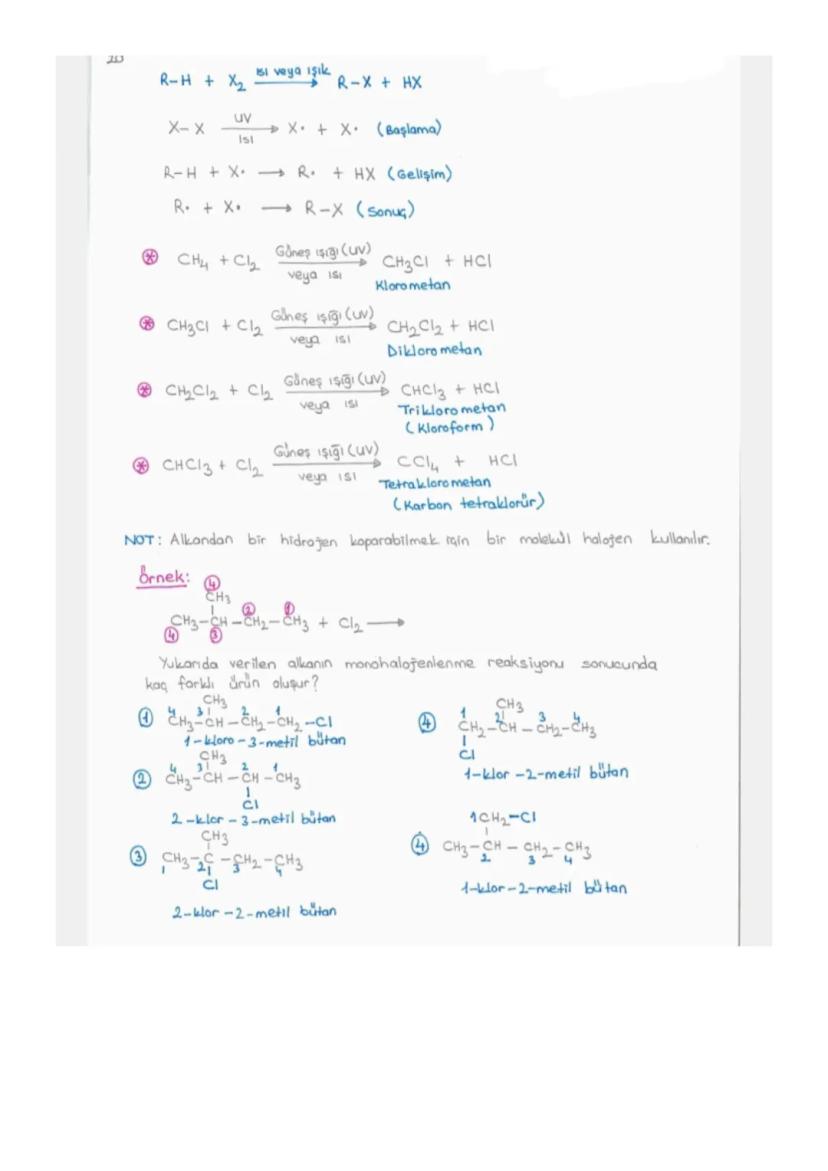 R-H + X₂ ısı veya ışık → R-X + HX
X-X UV ısı → X• + X• (Başlama)
R-H + X• → R• + HX (Gelişim)
R• + X• → R-X (Sonuç)
* CH₄ + Cl₂ Güneş ışığı (UV) veya ısı → CH₃Cl + HCl
Klorometan
* CH₃Cl + Cl₂ Güneş ışığı (UV) veya ısı → CH₂Cl₂ + HCl
Diklorometan
* CH₂Cl₂ + Cl₂ Güneş ışığı (UV) veya ısı → CHCl₃ + HCl
Triklorometan
(Kloroform)
* CHCl₃ + Cl₂ Güneş ışığı (UV) veya ısı → CCl₄ + HCl
Tetraklorometan
(Karbon tetraklorür)
NOT: Alkandan bir hidrojen koparabilmek için bir molekül halojen kullanılır.
Örnek:
④
CH₃
② ①
CH₃-CH-CH₂-CH₃ + Cl₂ →
④ ③
Yukarıda verilen alkanın monohalojenlenme reaksiyonu sonucunda
kaç farklı ürün oluşur?
CH₃
① 4 3 2 1
CH₃-CH-CH₂-CH₂-Cl
1-kloro-3-metil bütan
CH₃
② 4 3 2 1
CH₃-CH-CH-CH₃
Cl
2-klor-3-metil bütan
CH₃
③ CH₃-C-CH₂-CH₃
1 2 3 4
Cl
2-klor-2-metil bütan
CH₃
④ 1 2 3 4
CH₂-CH-CH₂-CH₃
Cl
1-klor-2-metil bütan
1CH₂-Cl
④ CH₃-CH-CH₂-CH₃
2 3 4
1-klor-2-metil bütan